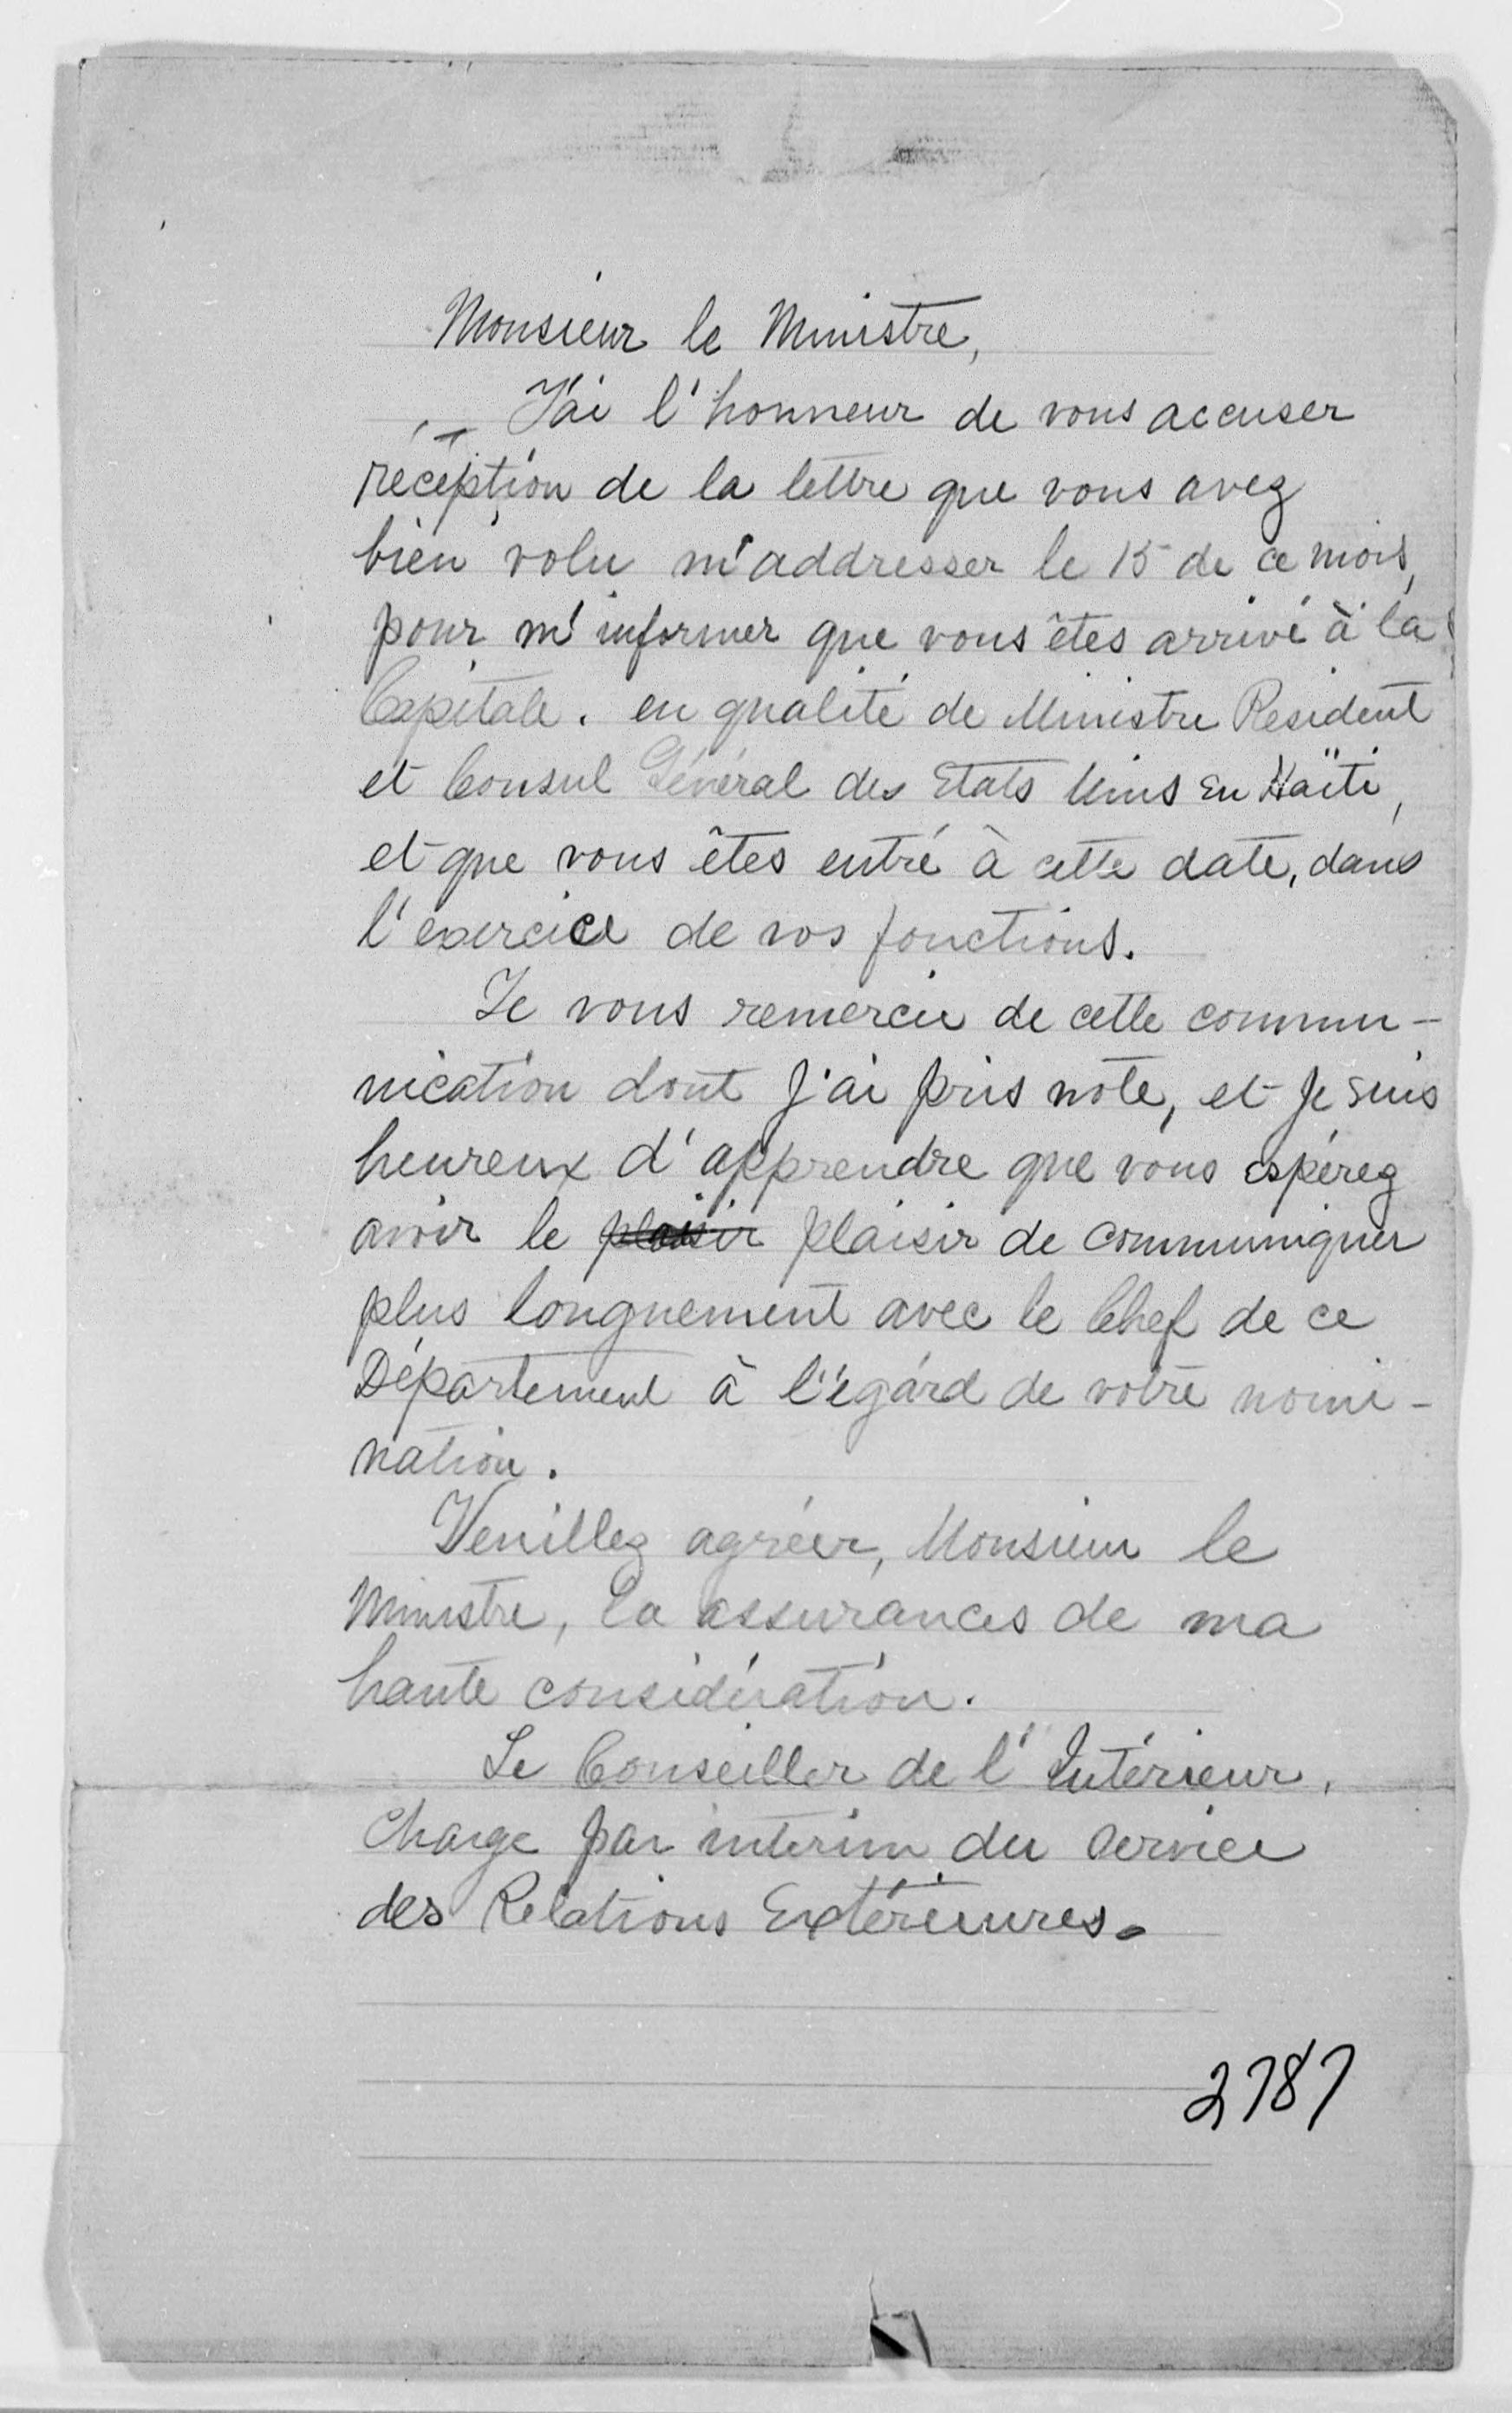 Monsieur le Ministre,
J'ai l'honneur de vous accuser
réception de la lettre que vous avez
bien volu m'addresser le 15 de ce mois,
pour m'informer que vous êtes arrivé à la
Capitale. en qualité de Ministre Resident
et Consul Général des Etats Unis en Haïti,
et que vous êtes entré à cette date, dans
l'exercice de vos fonctions.
Je vous remercie de cette commu-
nication dont j'ai pris note, et je suis
heureux d'apprendre que vous espérez
avoir le plaisir plaisir de communiquer
plus longuement avec le Chef de ce
Département à l'égard de votre nomi-
nation.
Veuillez agréer, Monsieur le
Ministre, la assurances de ma
haute considération.
Le Conseiller de l'Intérieur,
Charge par interim du Service
des Relations Extérieures.
2787